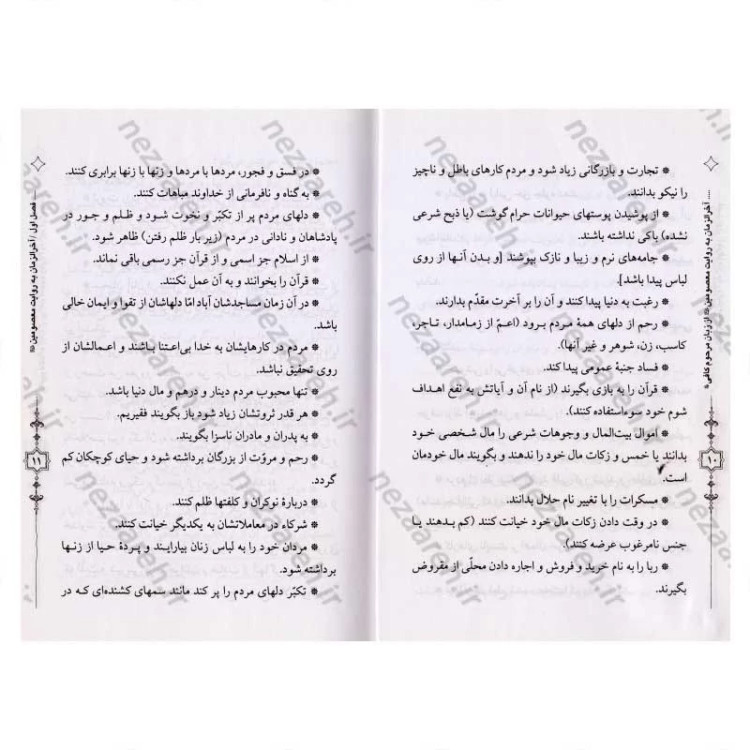 ..... آخرالزمان به روایت معصومین از زبان مرحوم کافی
۱۰
* تجارت و بازرگانی زیاد شود و مردم کارهای باطل و ناچیز
را نیکو بدانند.
* از پوشیدن پوستهای حیوانات حرام گوشت (یا ذبح شرعی
نشده) باکی نداشته باشند.
* جامه‌های نرم و زیبا و نازک بپوشند [و بدن آنها از روی
لباس پیدا باشد].
* رغبت به دنیا پیدا کنند و آن را بر آخرت مقدّم بدارند.
* رحم از دلهای همهٔ مردم برود (اعمّ از زمامدار، تاجر،
کاسب، زن، شوهر و غیر آنها).
* فساد جنبهٔ عمومی پیدا کند.
* قرآن را به بازی بگیرند (از نام آن و آیاتش به نفع اهداف
شوم خود سوءاستفاده کنند).
* اموال بیت‌المال و وجوهات شرعی را مال شخصی خود
بدانند یا خمس و زکات مال خود را ندهند و بگویند مال خودمان
است.
* مسکرات را با تغییر نام حلال بدانند.
* در وقت دادن زکات مال خود خیانت کنند (کم بدهند یا
جنس نامرغوب عرضه کنند).
* ربا را به نام خرید و فروش و اجاره دادن محلّی از مقروض
بگیرند.
..... فصل اول / آخرالزمان به روایت معصومین
۱۱
* در فسق و فجور، مردها با مردها و زنها با زنها برابری کنند.
* به گناه و نافرمانی از خداوند مباهات کنند.
* دلهای مردم پر از تکبّر و نخوت شود و ظلم و جور در
پادشاهان و نادانی در مردم (زیر بار ظلم رفتن) ظاهر شود.
* از اسلام جز اسمی و از قرآن جز رسمی باقی نماند.
* قرآن را بخوانند و به آن عمل نکنند.
* در آن زمان مساجدشان آباد امّا دلهاشان از تقوا و ایمان خالی
باشد.
* مردم در کارهایشان به خدا بی‌اعتنا باشند و اعمالشان از
روی تحقیق نباشد.
* تنها محبوب مردم دینار و درهم و مال دنیا باشد.
* هر قدر ثروتشان زیاد شود باز بگویند فقیریم.
* به پدران و مادران ناسزا بگویند.
* رحم و مروّت از بزرگان برداشته شود و حیای کوچکان کم
گردد.
* دربارهٔ نوکران و کلفتها ظلم کنند.
* شرکاء در معاملاتشان به یکدیگر خیانت کنند.
* مردان خود را به لباس زنان بیارایند و پردهٔ حیا از زنها
برداشته شود.
* تکبّر دلهای مردم را پر کند مانند سمهای کشنده‌ای که در
nezaareh.ir
nezaareh.ir
nezaareh.ir
nezaareh.ir
nezaareh.ir
nezaareh.ir
nezaareh.ir
nezaareh.ir
nezaareh.ir